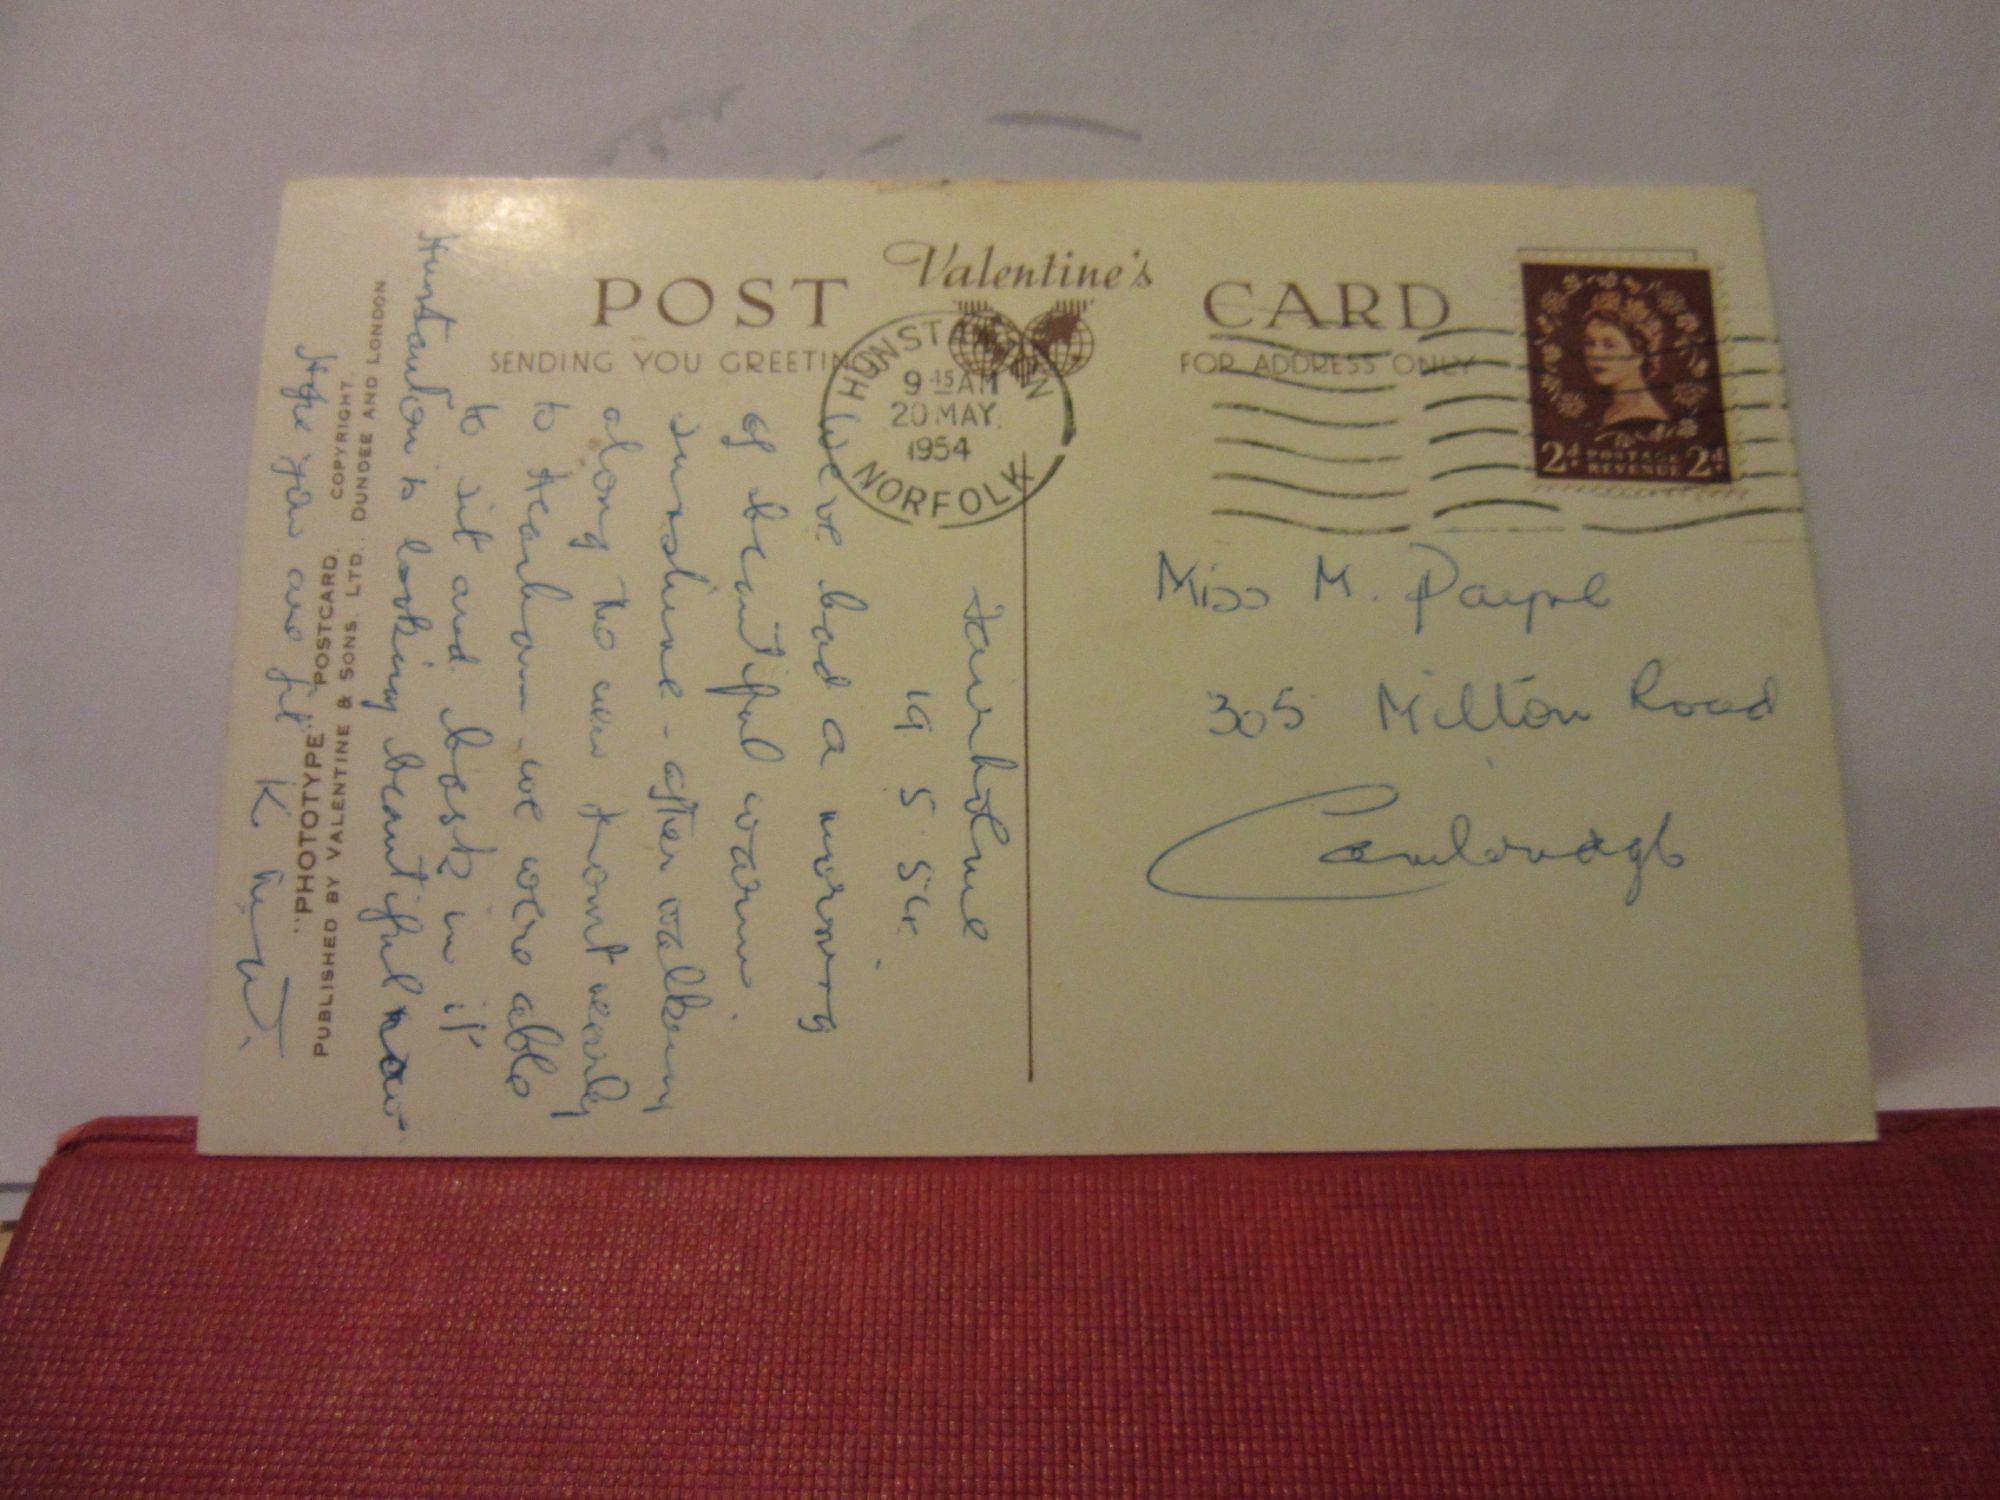 POST Valentine's CARD
SENDING YOU GREETINGS
FOR ADDRESS ONLY
HUNSTANTON
9 - 15 AM
20 MAY.
1954
NORFOLK
2d. POSTAGE 2d.
REVENUE
Miss M. Payne
305 Milton Road
Cambridge
Fairholme
19 5 54.
We've had a morning
of beautiful warm
sunshine - after walking
along the front nearly
to Heacham - we were able
to sit and bask in it
Hunstanton is looking beautiful now
Hope you are fit K
"PHOTOTYPE" POSTCARD. COPYRIGHT.
PUBLISHED BY VALENTINE & SONS. LTD., DUNDEE AND LONDON